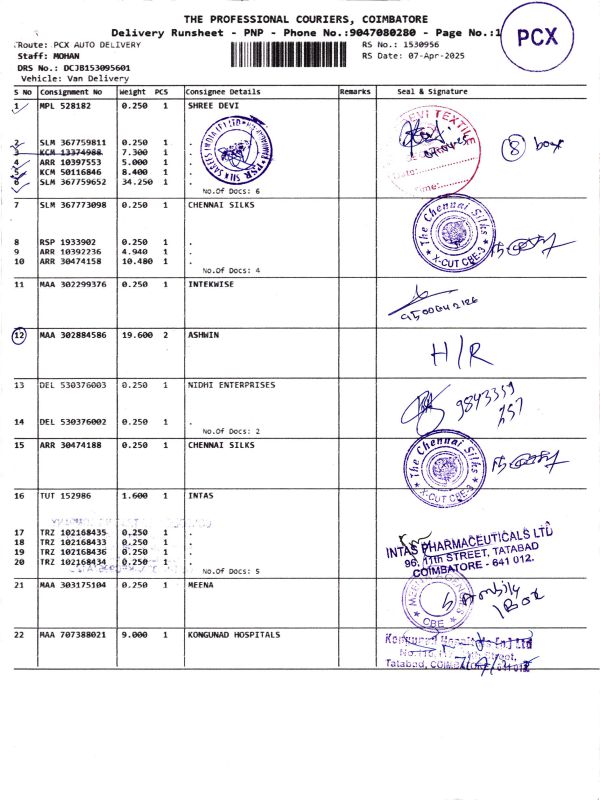 THE PROFESSIONAL COURIERS, COIMBATORE
Delivery Runsheet - PNP - Phone No.:9047080280 - Page No.:1
PCX
Route: PCX AUTO DELIVERY
RS No.: 1530956
Staff: MOHAN
RS Date: 07-Apr-2025
DRS No.: DCJB153095601
Vehicle: Van Delivery
S No Consignment No Weight PCS Consignee Details Remarks Seal & Signature
1 MPL 528182 0.250 1 SHREE DEVI
DEVI TEXTILE
Date:
Time:
8 box
2 SLM 367759811 0.250 1 .
3 KCM 13374988 7.300 1 .
4 ARR 10397553 5.000 1 .
5 KCM 50116846 8.400 1 .
6 SLM 367759652 34.250 1 .
No.Of Docs: 6
7 SLM 367773098 0.250 1 CHENNAI SILKS
The Chennai Silks
X-CUT CBE-3
8 RSP 1933902 0.250 1 .
9 ARR 10392236 4.940 1 .
10 ARR 30474158 10.480 1 .
No.Of Docs: 4
11 MAA 302299376 0.250 1 INTEKWISE
12 MAA 302884586 19.600 2 ASHWIN
H/R
13 DEL 530376003 0.250 1 NIDHI ENTERPRISES
9843359
757
14 DEL 530376002 0.250 1 .
No.Of Docs: 2
15 ARR 30474188 0.250 1 CHENNAI SILKS
The Chennai Silks
X-CUT CBE-3
16 TUT 152986 1.600 1 INTAS
17 TRZ 102168435 0.250 1 .
18 TRZ 102168433 0.250 1 .
19 TRZ 102168436 0.250 1 .
20 TRZ 102168434 0.250 1 .
No.Of Docs: 5
INTAS PHARMACEUTICALS LTD
96, 11th STREET, TATABAD
COIMBATORE - 641 012.
21 MAA 303175104 0.250 1 MEENA
CBE
1 Box
22 MAA 707388021 9.000 1 KONGUNAD HOSPITALS
Kongunad Hospitals (p) Ltd
Street,
Tatabad, COIMBATORE 641 012